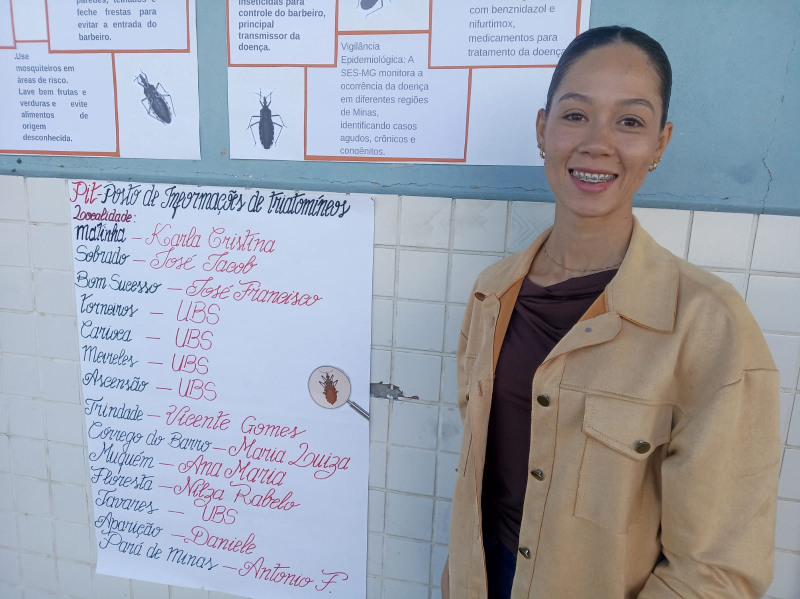 paredes, telhados e
feche frestas para
evitar a entrada do
barbeiro.
Use
mosquiteiros em
áreas de risco.
Lave bem frutas e
verduras e evite
alimentos de
origem
desconhecida.
inseticidas para
controle do barbeiro,
principal
transmissor da
doença.
Vigilância
Epidemiológica: A
SES-MG monitora a
ocorrência da doença
em diferentes regiões
de Minas,
identificando casos
agudos, crônicos e
congênitos.
com benznidazol e
nifurtimox,
medicamentos para
tratamento da doença
Pit-Posto de Informações de triatomíneos
Localidade:
Matinha - Karla Cristina
Sobrado - José Jacob
Bom Sucesso - José Francisco
Torneiros - UBS
Carioca - UBS
Meireles - UBS
Ascensão - UBS
Trindade - Vicente Gomes
Corrego do Barro - Maria Luiza
Muquém - Ana Maria
Floresta - Nilza Rabelo
Tavares - UBS
Aparição - Daniele
Pará de Minas - Antonio F.